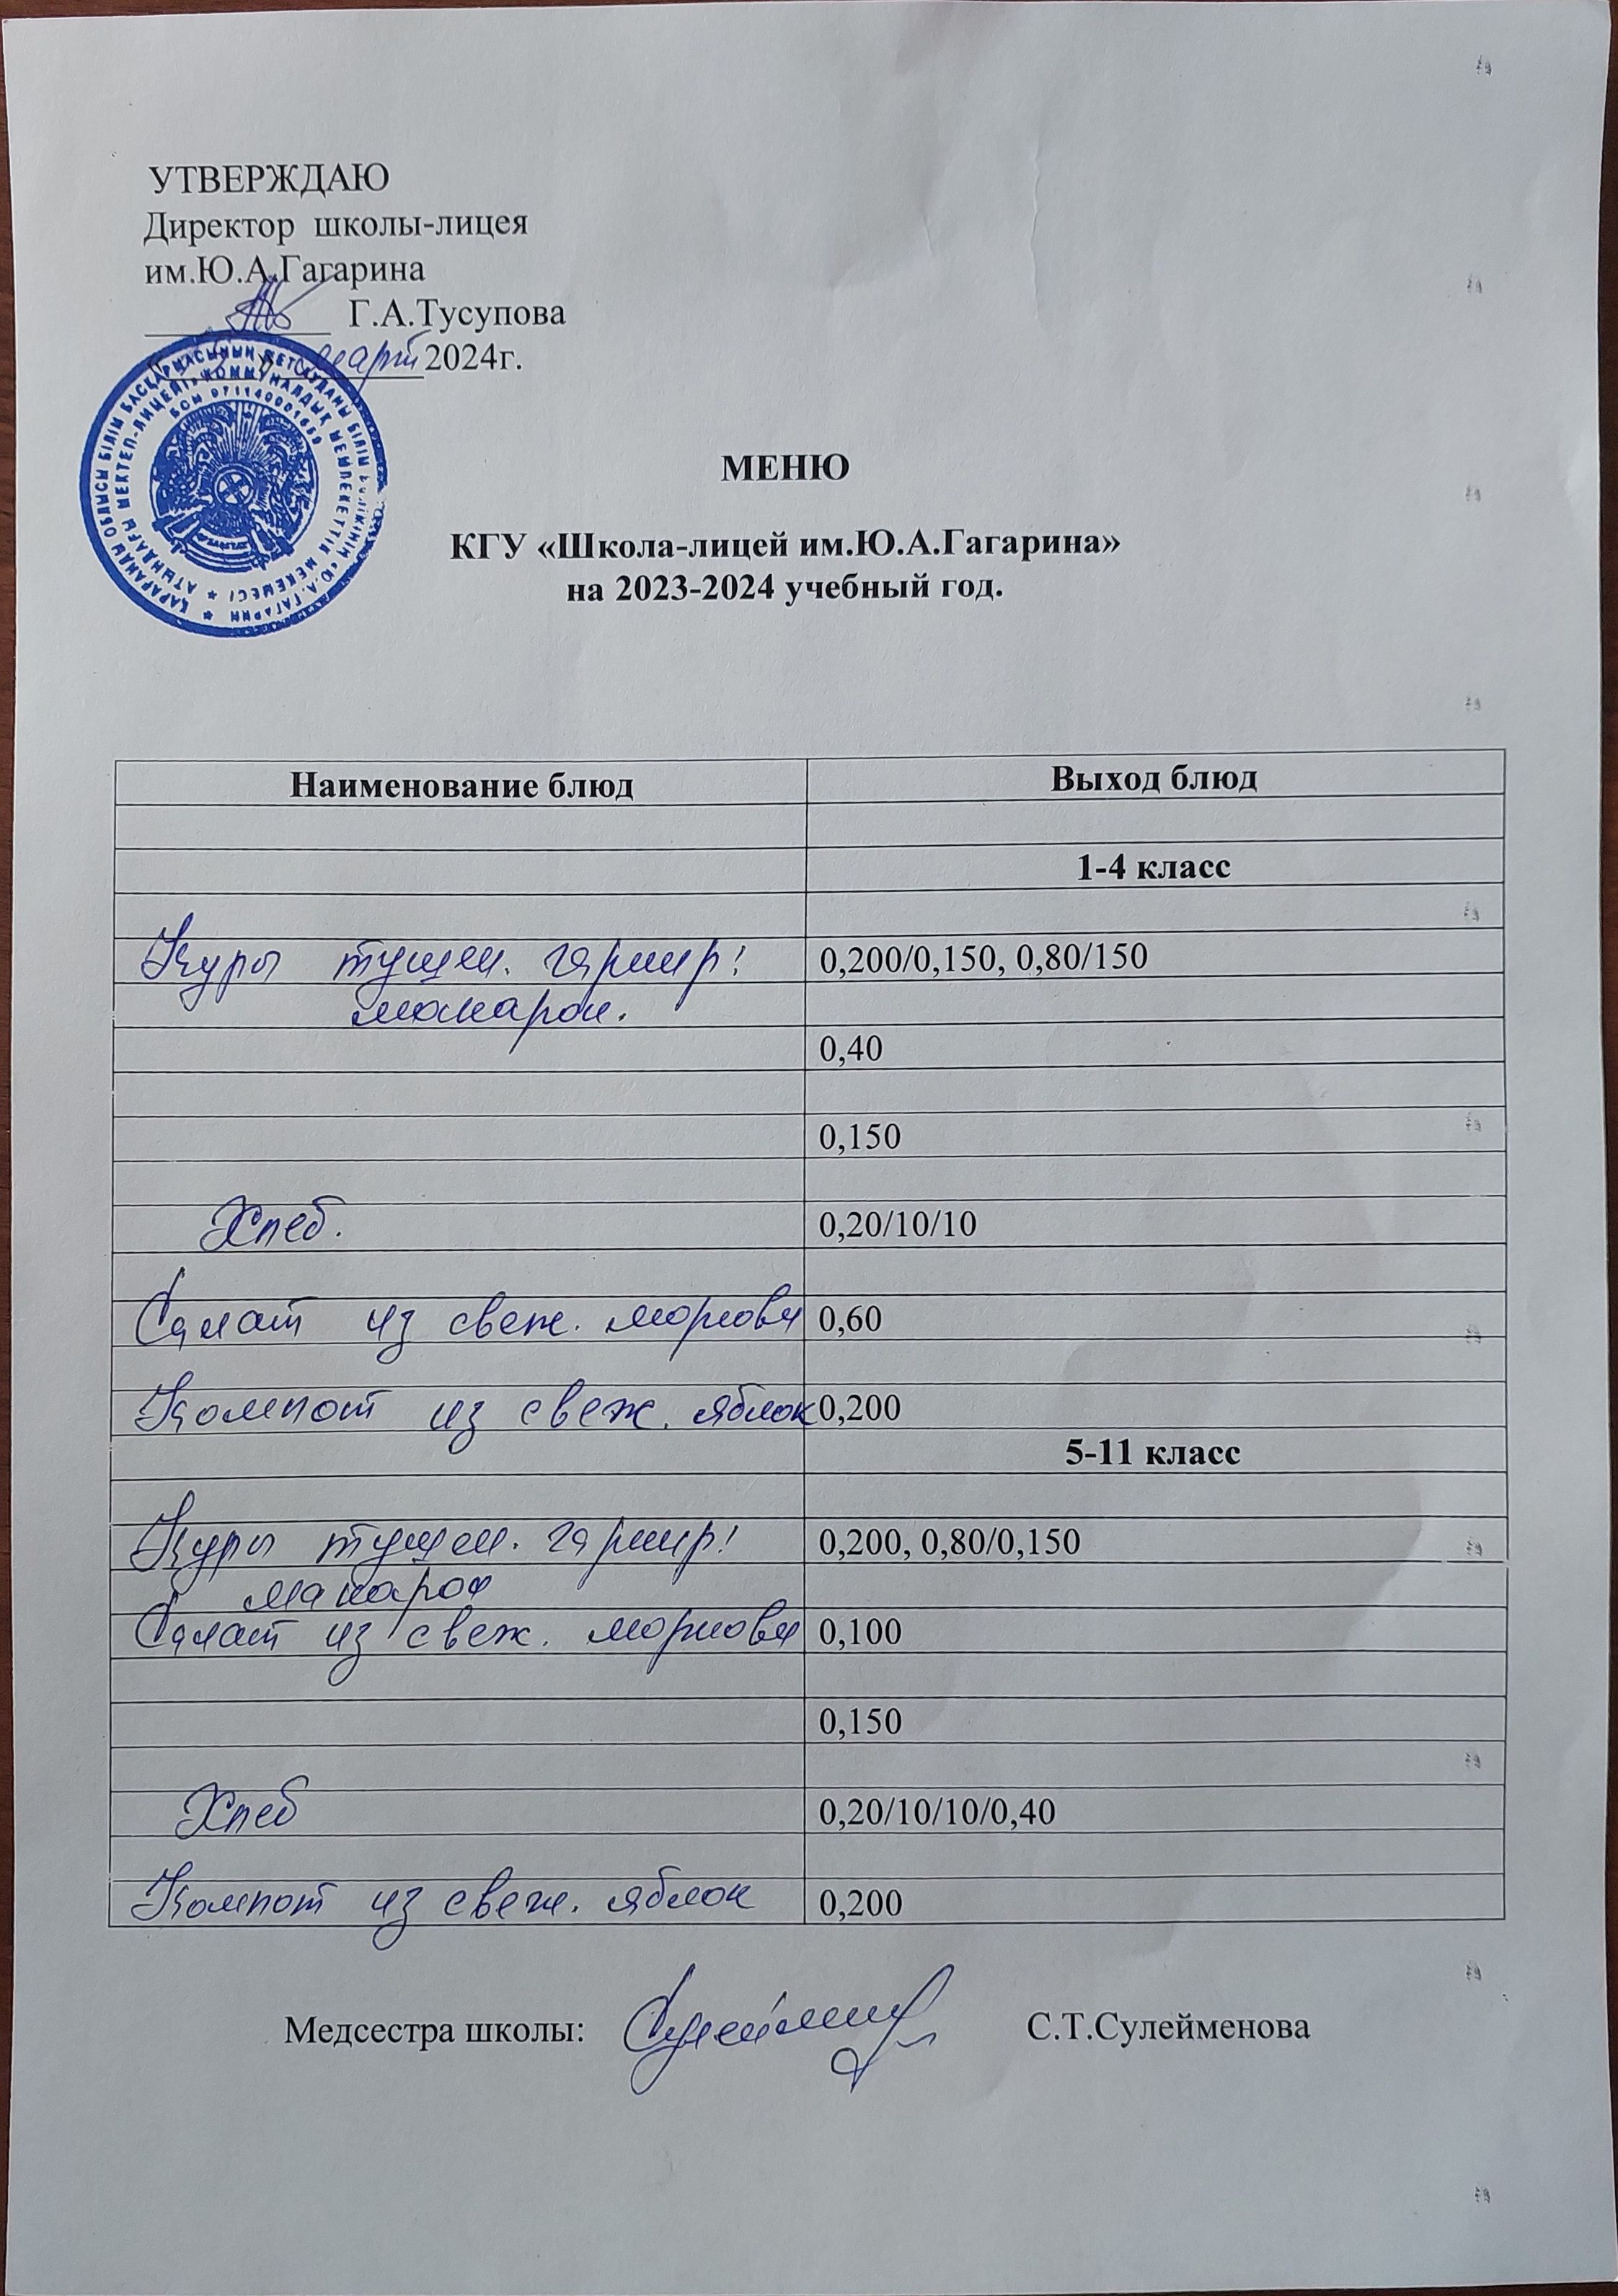 УТВЕРЖДАЮ
Директор школы-лицея
им.Ю.А.Гагарина
Г.А.Тусупова
март 2024г.
ҚАРАҒАНДЫ ОБЛЫСЫ БІЛІМ БАСҚАРМАСЫНЫҢ БІЛІМ БӨЛІМІНІҢ «Ю.А.ГАГАРИН
АТЫНДАҒЫ МЕКТЕП-ЛИЦЕЙІ» КОММУНАЛДЫҚ МЕМЛЕКЕТТІК МЕКЕМЕСІ
МЕНЮ
КГУ «Школа-лицей им.Ю.А.Гагарина»
на 2023-2024 учебный год.
Наименование блюд Выход блюд
1-4 класс
Куры тушен. гарнир: 0,200/0,150, 0,80/150
макарон.
0,40
0,150
Хлеб. 0,20/10/10
Салат из свеж. моркови 0,60
Компот из свеж. яблок 0,200
5-11 класс
Куры тушен. гарнир: 0,200, 0,80/0,150
макарон
Салат из свеж. моркови 0,100
0,150
Хлеб 0,20/10/10/0,40
Компот из свеж. яблок 0,200
Медсестра школы: С.Т.Сулейменова